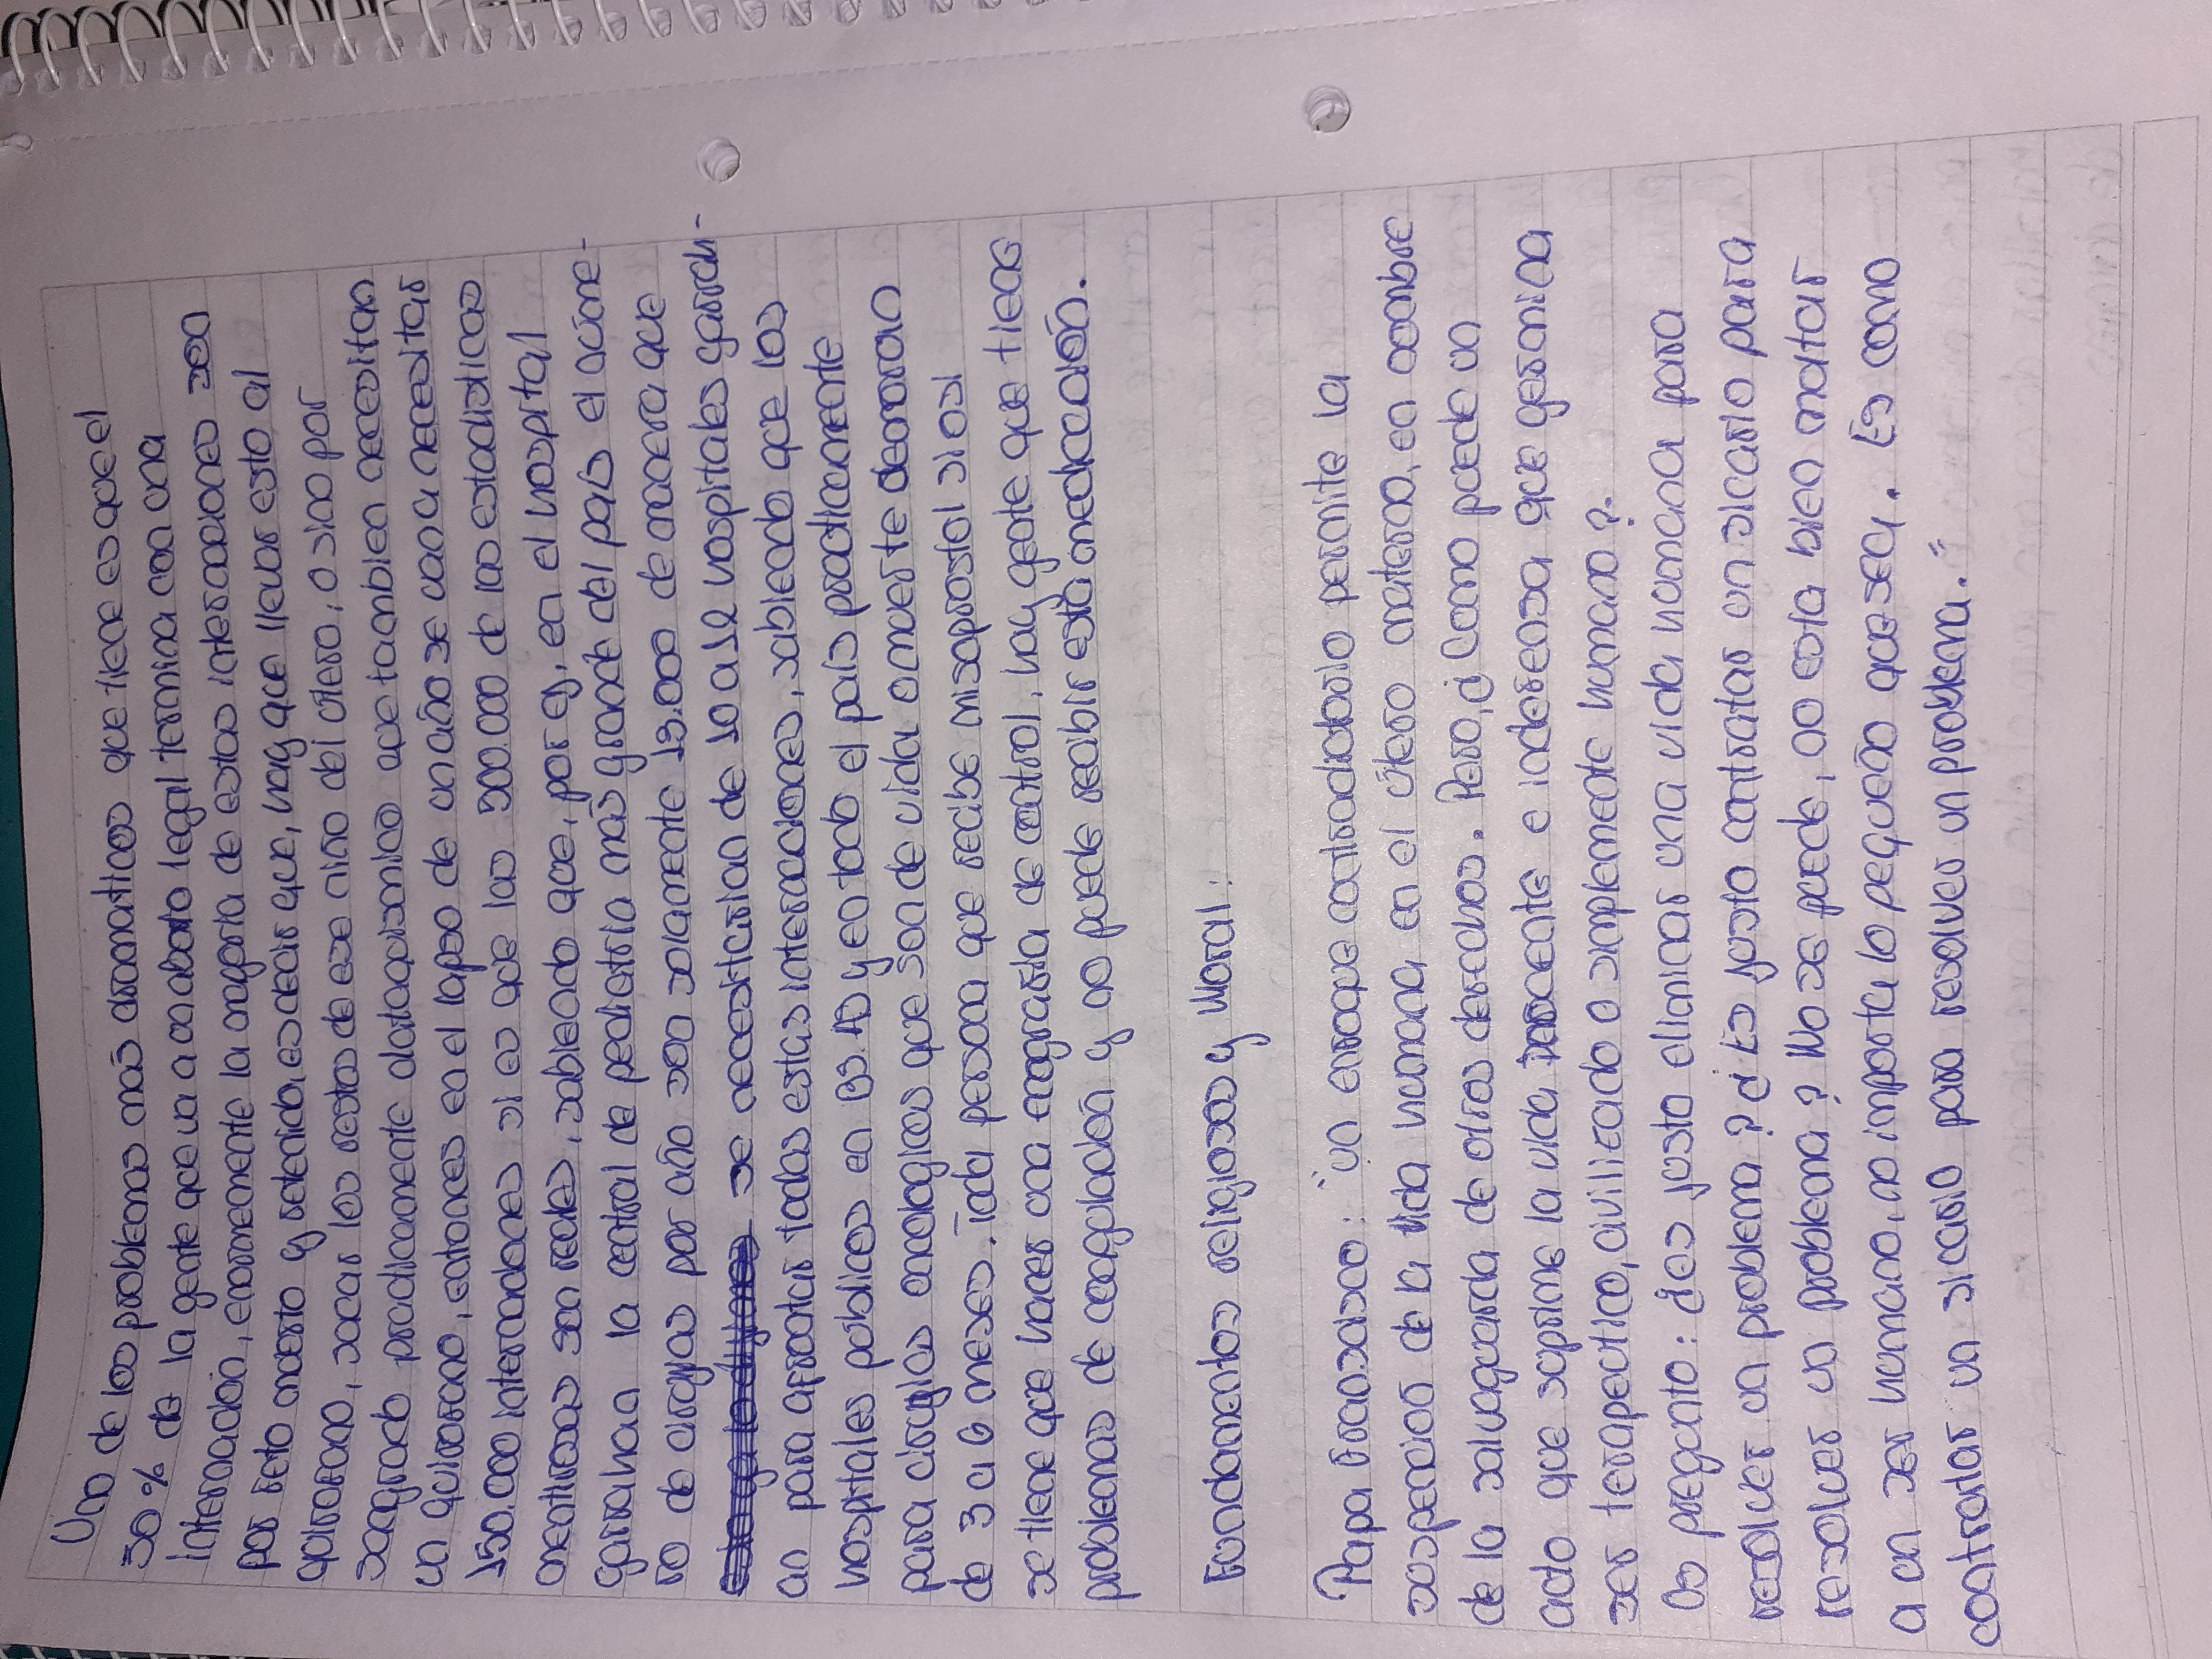 Uno de los problemas más dramáticos que tiene es que el
30 % de la gente que va a un aborto legal termina con una
internación, enormemente la mayoria de estas internaciones son
por feto muerto y retenido, es decir que, hay que llevar esto al
quirofano, sacar los restos de ese niño del útero, o sino por
sangrado practicamente abtoquisimico que tambien necesitan
un quirofano, entonces en el lapso de un año se van a necesitar
150.000 internaciones si es que las 500.000 de las estadisticas
mentirosas son reales, sabiendo que, por ej, en el hospital
garrahan la central de pediatria más grande del país el núme-
ro de cirugias por año son solamente 13.000 de manera que
se necesitarian de 10 a 12 hospitales garrah-
an para afrontar todas estas internaciones, sabiendo que los
hospitales públicos en BS. AS y en todo el país practicamente
para cirugias oncologicas que son de vida o muerte demoran
de 3 a 6 meses. Toda persona que recibe misoprostol si o si
se tiene que hacer una ecografia de control, hay gente que tiene
problemas de coagulación y no puede recibir esta medicación.
Fundamentos religiosos y Moral:
Papa Francisco: "Un enfoque contradictorio permite la
suspencion de la vida humana en el útero materno, en nombre
de la salvaguarda de otros derechos. Pero, ¿Como puede un
acto que suprime la vida inocente e indefensa que germina
ser terapeutico, civilizado o simplemente humano?.
Os pregunto: ¿es justo eliminar una vida humana para
resolver un problema? ¿Es justo contratar un sicario para
resolver un problema? No se puede, no esta bien matar
a un ser humano, no importa lo pequeño que sea. Es como
contratar un sicario para resolver un problema."